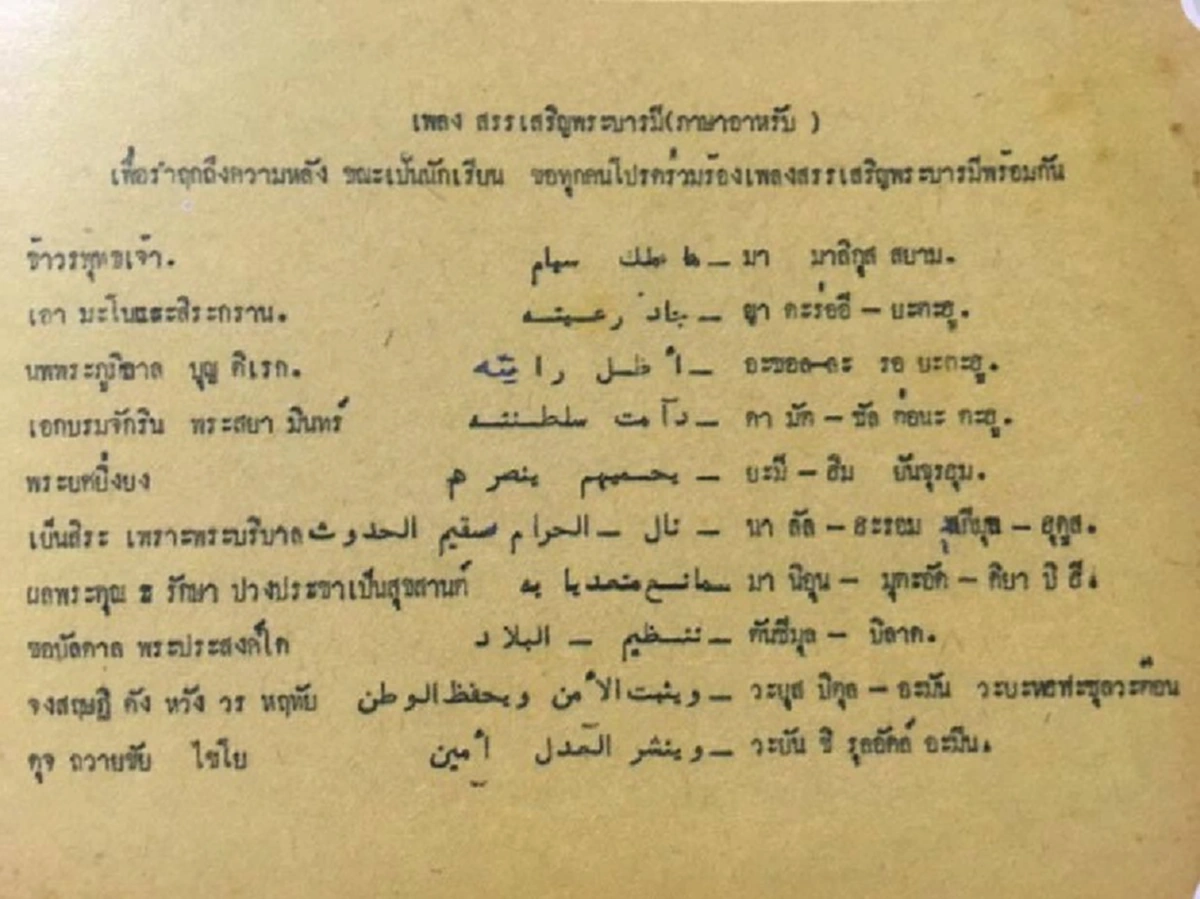 เพลง สรรเสริญพระบารมี(ภาษาอาหรับ )
เพื่อรำฤกถึงความหลัง ขณะเป็นนักเรียน ขอทุกคนโปรดร่วมร้องเพลงสรรเสริญพระบารมีพร้อมกัน
ข้าวรพุทธเจ้า. ها ملك سيام – มา มาลิกุส สยาม.
เอา มะโนและสิระกราน. جاد رعيته – ญา ดะร่ออี – ยะตะฮู.
นพพระภูมิบาล บุญ ดิเรก. أظل رايته – อะซอล–ละ รอ ยะตะฮู.
เอกบรมจักริน พระสยา มินทร์ دآمت سلطنته – ดา มัต – ซัล ต่อนะ ตะฮู.
พระยศยิ่งยง يحميهم ينصر هم – ยะมี – ฮิม ยันซุรฮุม.
เย็นศิระ เพราะพระบริบาล نال – الحرام صقيم الحدوث – นา ลัล – ฮะรอม – ฮุดูส.
ผลพระคุณ ธ รักษา ปวงประชาเป็นสุขสานต์ مانع متعديا به – มา นิอุน – มุตะอัด – ดิยา บิ ฮี.
ขอบันดาล พระประสงค์ใด تنظيم – البلاد – ตันซีมุล – บิลาด.
จงสฤษฎิ์ ดัง หวัง วร หฤทัย ويثبت الأمن ويحفظ الوطن – วะยุส บิตุล – อะมัน วะยะหฟะซุลวะต๊อน
ดุจ ถวายชัย ไชโย وينشر العدل أمين – วะยัน ชิ รุลอัดล์ อะมีน.